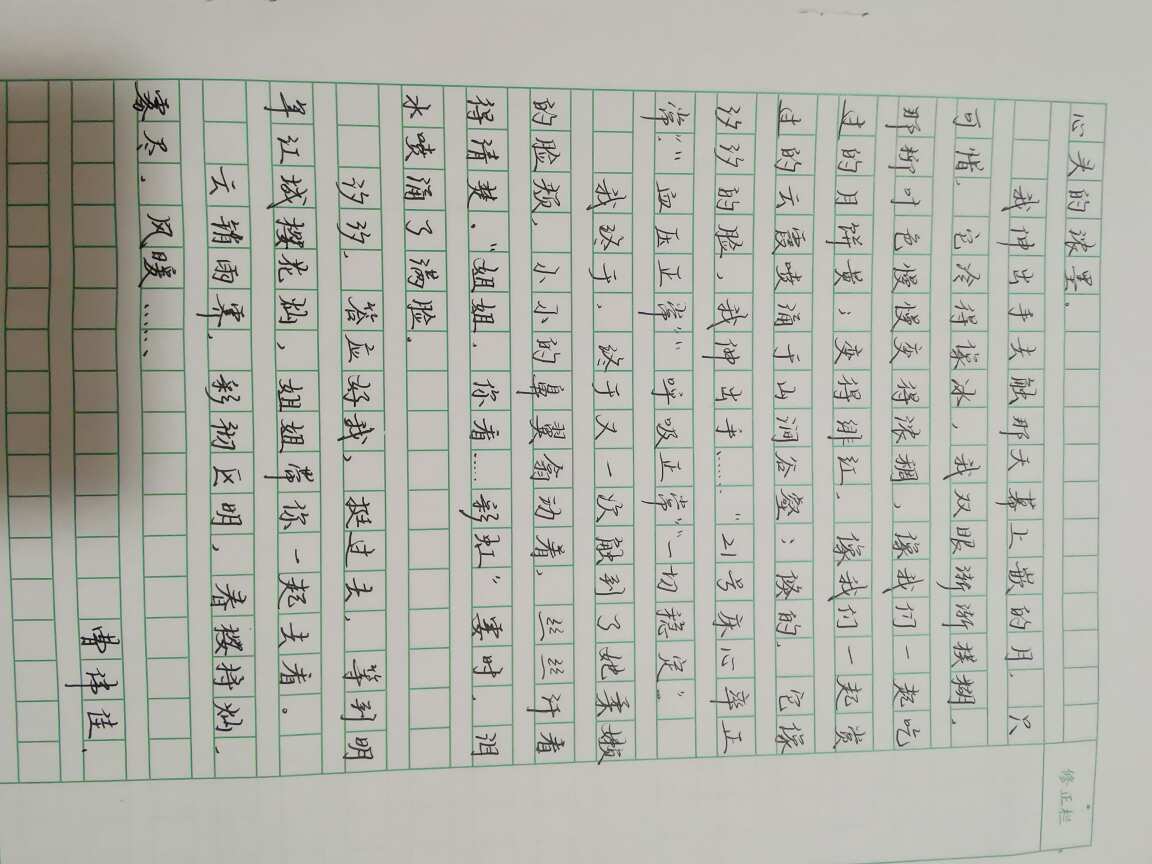 心头的浓墨。
我伸出手去触那天幕上嵌的月，只
可惜，它冷得像冰，我双眼渐渐模糊，
那柳叶色慢慢变得浓稠，像我们一起吃
过的月饼黄；变得绯红，像我们一起赏
过的云霞喷涌于山涧谷壑；倏的，它像
汐汐的脸，我伸出手……“21号床心率正
常！”“血压正常”“呼吸正常”“一切稳定”
我终于，终于又一次触到了她柔嫩
的脸颊，小小的鼻翼翕动着，丝丝汗着
得清楚，“姐姐，你看……彩虹”霎时，泪
水喷涌了满脸。
汐汐，答应好我，挺过去，等到明
年江城樱花灿，姐姐带你一起去看。
云销雨霁，彩彻区明，春樱将灿，
雾尽，风暖……、
曹伟佳、
修正栏